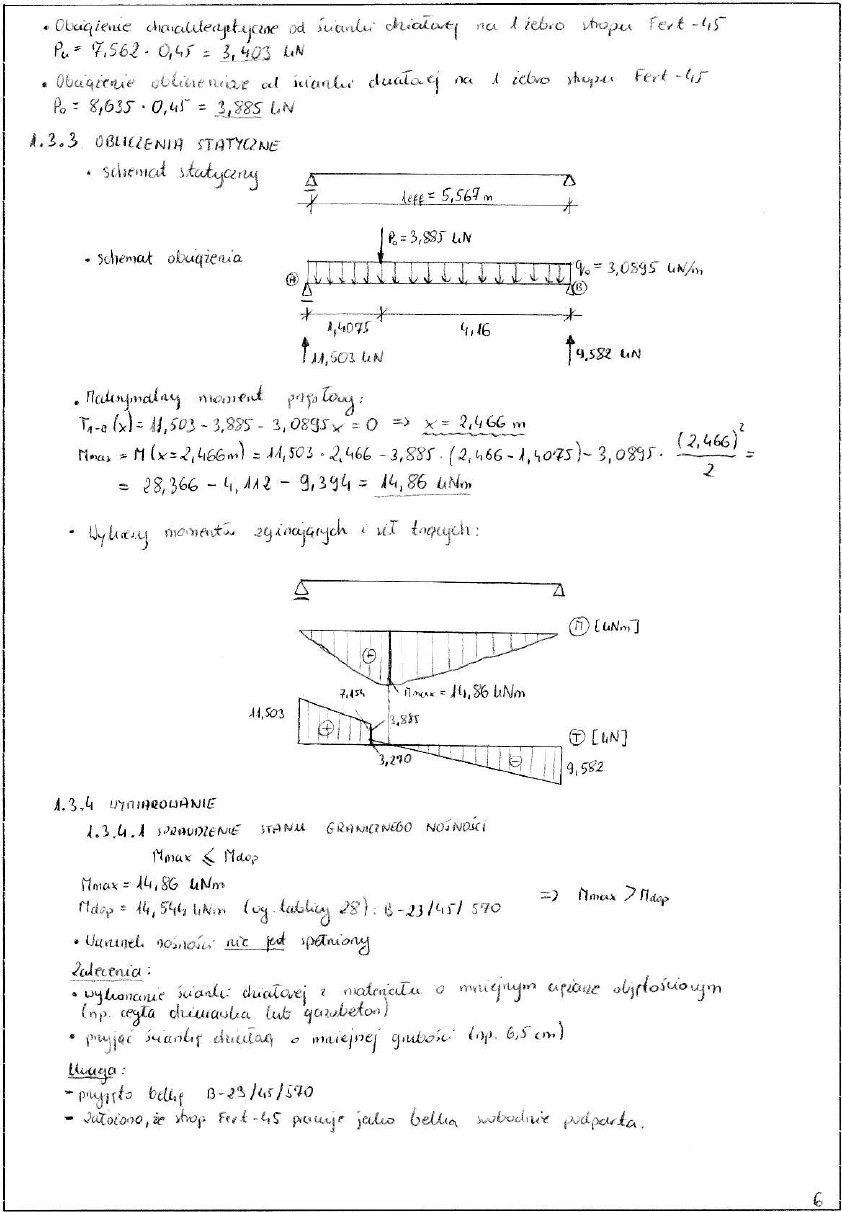 • Obciążenie charakterystyczne od ścianki działowej na 1 żebro stropu Fert-45
Pk = 7,562 · 0,45 = 3,403 kN
• Obciążenie obliczeniowe od ścianki działowej na 1 żebro stropu Fert-45
Po = 8,635 · 0,45 = 3,885 kN
1.3.3 OBLICZENIA STATYCZNE
• schemat statyczny
leff = 5,567 m
Po = 3,885 kN
• schemat obciążenia
qo = 3,0895 kN/m
A
B
1,4075
4,16
11,503 kN
9,582 kN
• Maksymalny moment przęsłowy:
T1-2 (x) = 11,503 - 3,885 - 3,0895x = 0 => x = 2,466 m
Mmax = M(x=2,466m) = 11,503 · 2,466 - 3,885 · (2,466 - 1,4075) - 3,0895 · (2,466)²/2 =
= 28,366 - 4,112 - 9,394 = 14,86 kNm
- Wykresy momentów zginających i sił tnących:
M [kNm]
+
7,154
Mmax = 14,86 kNm
11,503
+
3,885
T [kN]
3,270
-
9,582
1.3.4 WYMIAROWANIE
1.3.4.1 SPRAWDZENIE STANU GRANICZNEGO NOŚNOŚCI
Mmax ⩽ Mdop
Mmax = 14,86 kNm
Mdop = 14,544 kNm (wg. tablicy 28): B-23/45/570 => Mmax > Mdop
• Warunek nośności nie jest spełniony
Zalecenia:
• wykonanie ścianki działowej z materiału o mniejszym ciężarze objętościowym
(np. cegła dziurawka lub gazobeton)
• przyjąć ściankę działową o mniejszej grubości (np. 6,5 cm)
Uwaga:
- przyjęto belkę B-23/45/570
- założono, że strop Fert-45 pracuje jako belka swobodnie podparta.
6